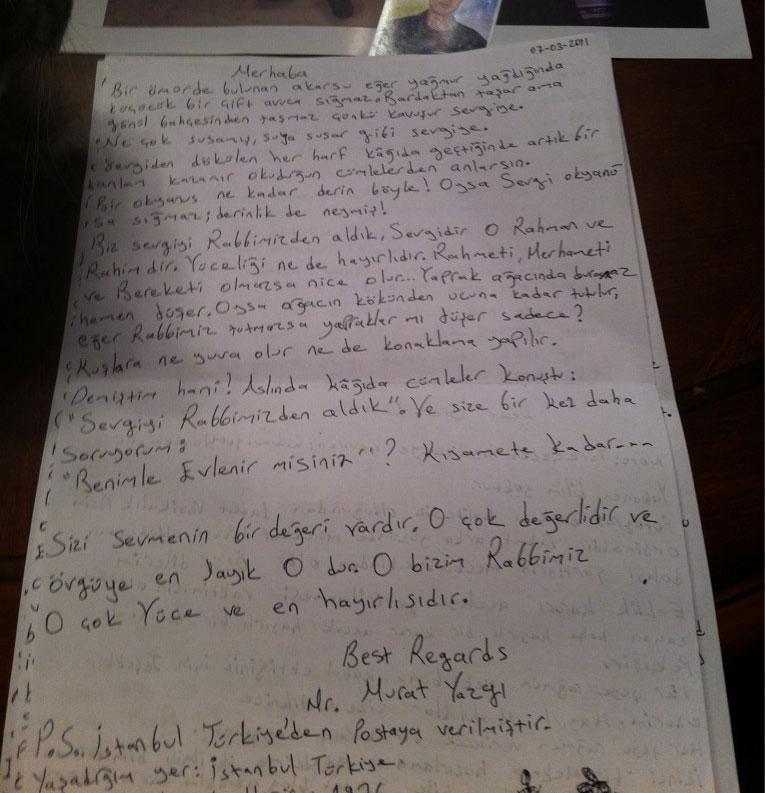 07-03-2011
Merhaba
Bir ömürde bulunan akarsu eğer yağmur yağdığında
küçücük bir çift avuca sığmaz. Bardaktan taşar ama
gönül bahçesinden taşmaz çünkü kavuşur sevgiye.
Ne çok susamış, suya susar gibi sevgiye.
Sevgiden dökülen her harf kâğıda geçtiğinde artık bir
anlam kazanır okuduğun cümlelerden anlarsın.
Bir okyanus ne kadar derin böyle! Oysa Sevgi okyanu
sa sığmaz; derinlik de neymiş!
Biz sevgiyi Rabbimizden aldık, Sevgidir O Rahman ve
Rahimdir. Yüceliği ne de hayırlıdır. Rahmeti, Merhameti
ve Bereketi olmazsa nice olur... Yaprak ağacında durmaz
hemen düşer. Oysa ağacın kökünden ucuna kadar tutulur,
eğer Rabbimiz tutmazsa yapraklar mı düşer sadece?
Kuşlara ne yuva olur ne de konaklama yapılır.
Demiştim hani! Aslında kâğıda cümleler konuştu:
"Sevgiyi Rabbimizden aldık". Ve size bir kez daha
Soruyorum:
"Benimle Evlenir misiniz"? Kıyamete kadar---
Sizi Sevmenin bir değeri vardır. O çok değerlidir ve
övgüye en layık O dur. O bizim Rabbimiz
O çok Yüce ve en hayırlısıdır.
Best Regards
Mr. Murat Yazgı
P.S. İstanbul Türkiye'den Postaya verilmiştir.
Yaşadığım yer: İstanbul Türkiye